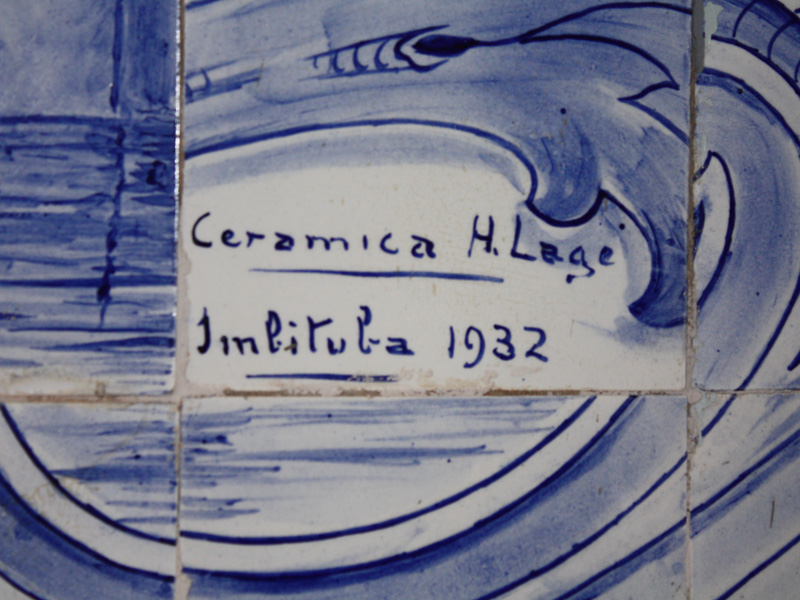 Ceramica H. Lage
Imbituba 1932